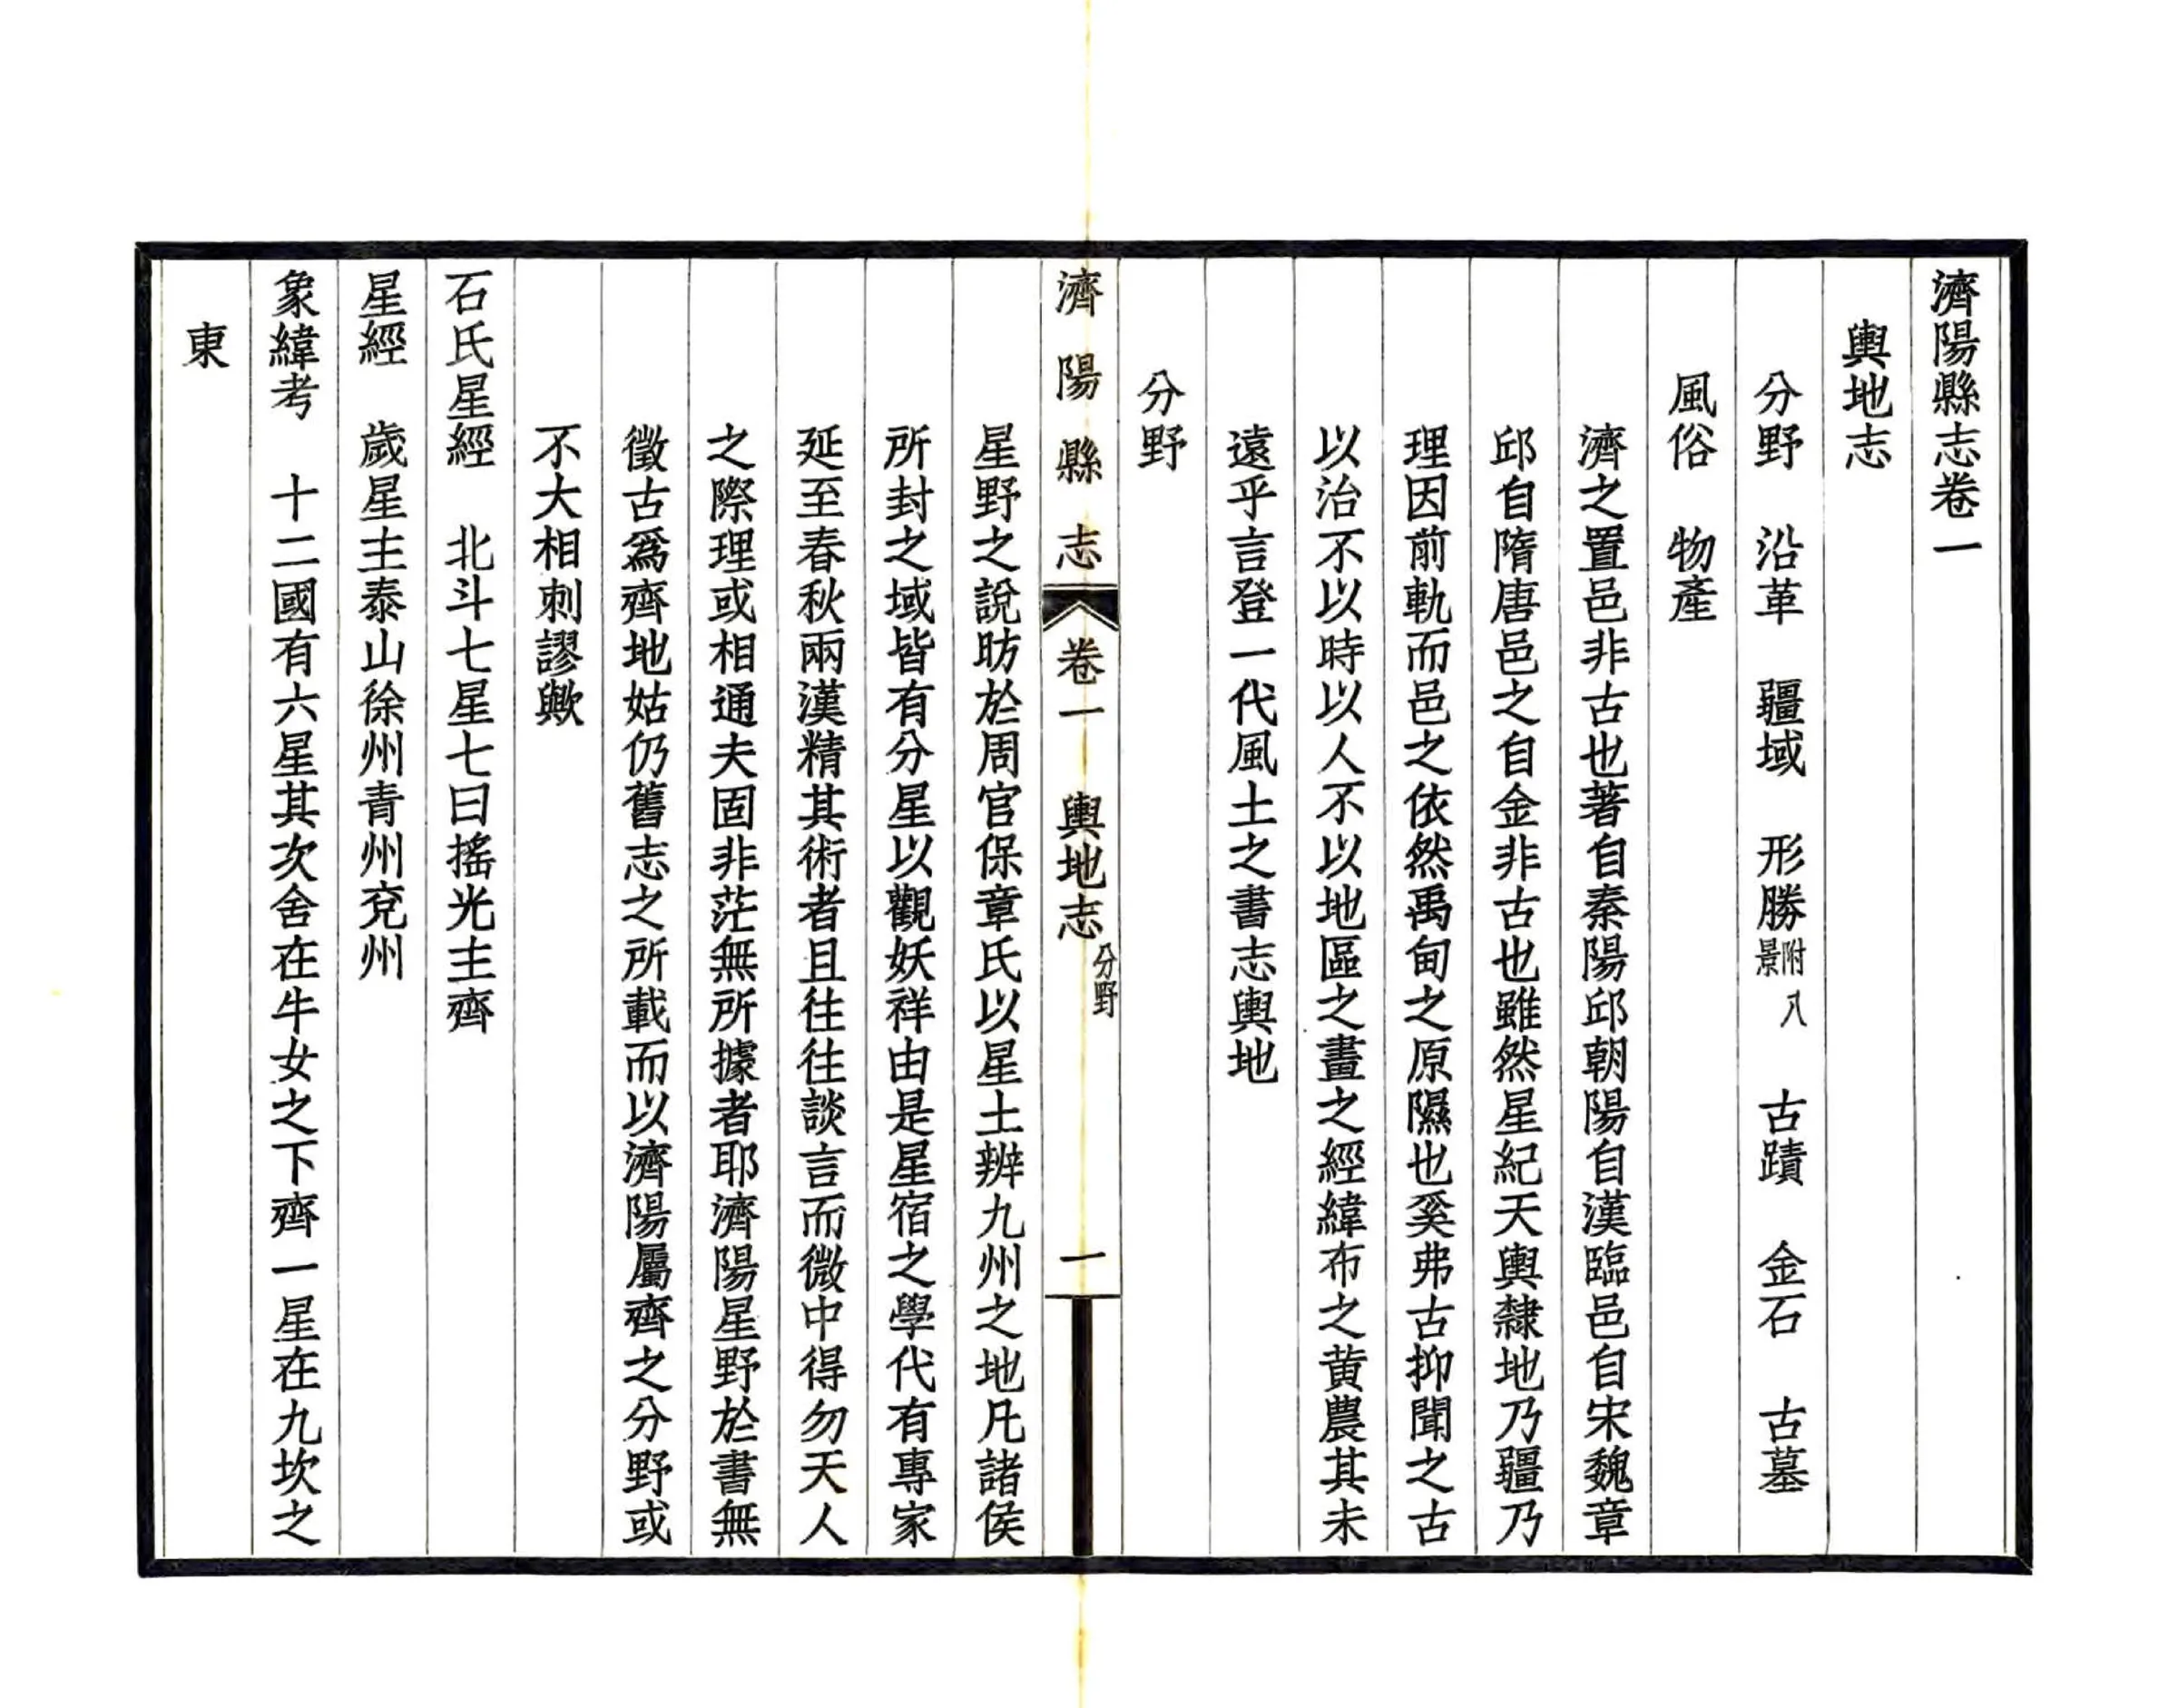 濟陽縣志卷一
輿地志
分野　沿革　疆域　形勝附八景　古蹟　金石　古墓
風俗　物產
濟之置邑非古也著自秦陽邱朝陽自漢臨邑自宋魏章
邱自隋唐邑之自金非古也雖然星紀天輿隸地乃疆乃
理因前軌而邑之依然禹甸之原隰也奚弗古抑聞之古
以治不以時以人不以地區之畫之經緯布之黃農其未
遠乎言登一代風土之書志輿地
分野
濟陽縣志　卷一　輿地志　分野　一
星野之說昉於周官保章氏以星土辨九州之地凡諸侯
所封之域皆有分星以觀妖祥由是星宿之學代有專家
延至春秋兩漢精其術者且往往談言而微中得勿天人
之際理或相通夫固非茫無所據者耶濟陽星野於書無
徵古爲齊地姑仍舊志之所載而以濟陽屬齊之分野或
不大相刺謬歟
石氏星經　北斗七星七曰搖光主齊
星經　歲星主泰山徐州青州兗州
象緯考　十二國有六星其次舍在牛女之下齊一星在九坎之
東